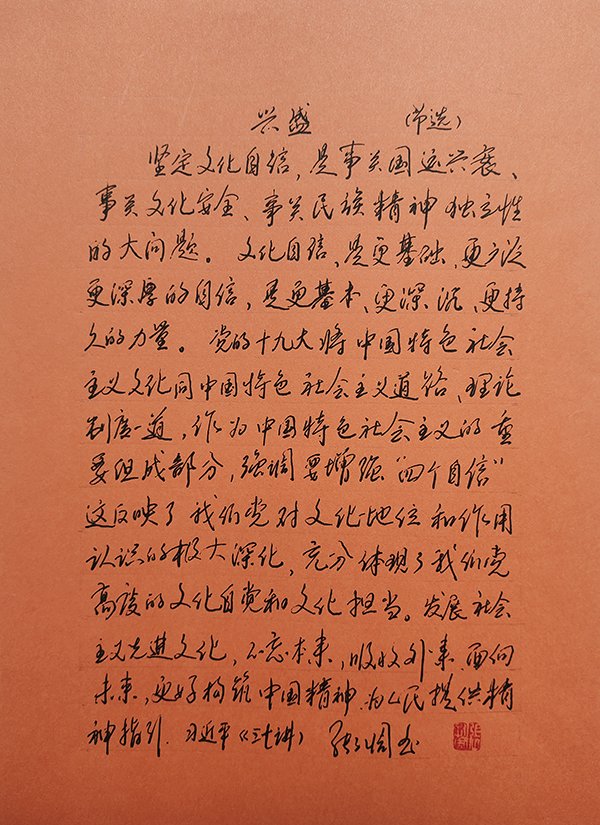 兴盛 (节选)
坚定文化自信，是事关国运兴衰、
事关文化安全、事关民族精神独立性
的大问题。文化自信，是更基础、更广泛
更深厚的自信，是更基本、更深沉、更持
久的力量。党的十九大将中国特色社会
主义文化同中国特色社会主义道路、理论
制度一道，作为中国特色社会主义的重
要组成部分，强调要增强"四个自信"
这反映了我们党对文化地位和作用
认识的极大深化，充分体现了我们党
高度的文化自觉和文化担当。发展社会
主义先进文化，不忘本来，吸收外来面向
未来，更好构筑中国精神、为人民提供精
神指引. 习近平《三十讲》 张